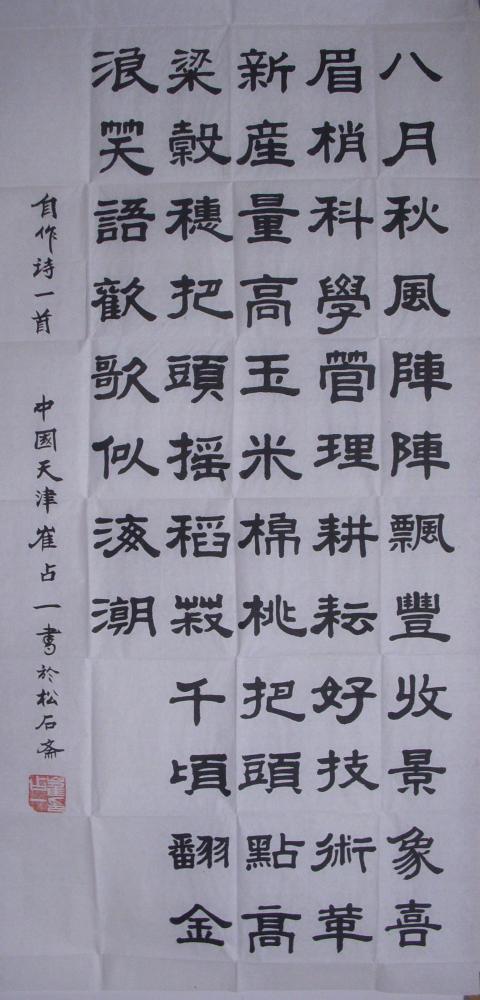 八月秋風陣陣飄豐收景象喜
眉梢科學管理耕耘好技術革
新産量高玉米棉桃把頭點髙
粱穀穗把頭摇稻菽千頃翻金
浪笑語歡歌似海潮
自作詩一首 中國天津崔占一書於松石斋